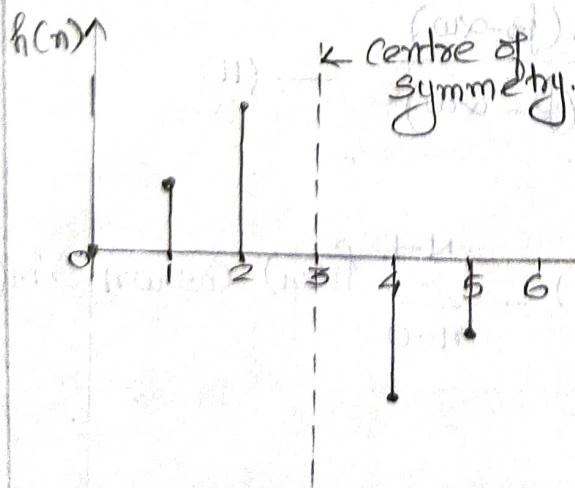 h(n)
← centre of
symmetry.
0 1 2 3 4 5 6